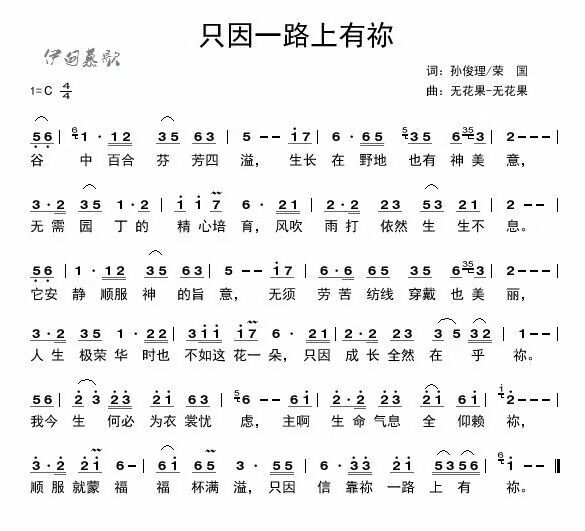 只因一路上有祢
伊甸慕歌
词：孙俊理/荣 国
1=C 4/4
曲：无花果-无花果
5 6 | 6 1 · 1 2 3 5 6 3 | 5 - - i 7 | 6 · 6 3 5 3 5 6 3 5 3 | 2 - - |
谷 中 百合 芬 芳四 溢， 生长 在 野地 也有 神 美 意，
3 · 2 3 5 1 · 2 | i i 7 6 · 2 1 | 2 · 2 2 3 5 3 2 1 | 2 - - |
无 需 园 丁 的 精 心培 育，风吹 雨 打 依然 生 生 不 息。
5 6 | 1 · 1 2 3 5 6 3 | 5 - - i 7 | 6 · 6 6 5 3 5 6 3 5 3 | 2 - - |
它安 静 顺服 神 的旨 意， 无须 劳 苦 纺线 穿戴 也 美 丽，
3 · 2 3 5 1 · 2 2 | 3 i i i 7 6 · 2 1 | 2 · 2 2 3 3 5 3 2 | 1 - - |
人 生 极荣 华 时也 不如这 花一 朵，只因 成 长 全然 在 乎 祢。
5 6 | 2 3 2 3 2 i | 5 6 - - 6 i | 2 · 2 2 3 2 i 6 6 i | i 2 - - |
我今 生 何必 为衣 裳忧 虑， 主啊 生 命 气息 全 仰赖 祢，
3 · 2 2 i 6 - | 6 i 6 3 5 - 5 5 | 6 · 3 3 2 i 5 3 5 6 | 6 i - - ‖
顺 服 就蒙 福 福 杯满 溢，只因 信 靠祢 一路 上 有 祢。